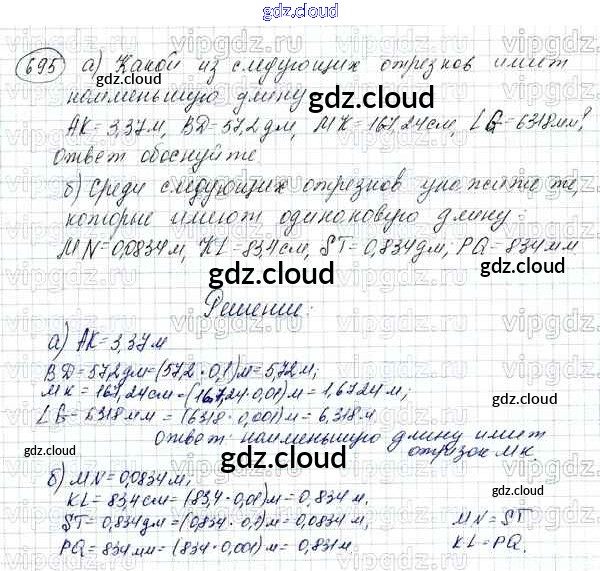 gdz.cloud
695 а) Какой из следующих отрезков имеет
наименьшую длину
АК = 3,37м, BD = 57,2 дм, МК = 167,24 см, LG = 6318 мм?
ответ обоснуйте
б) Среди следующих отрезков укажите те,
которые имеют одинаковую длину:
MN = 0,0834 м, KL = 83,4 см, ST = 0,834 дм, PQ = 834 мм
Решение:
а) АК = 3,37 м
BD = 57,2 дм = (57,2 · 0,1) м = 5,72 м;
МК = 167,24 см = (167,24 · 0,01) м = 1,6724 м;
LG = 6318 мм = (6318 · 0,001) м = 6,318 м
Ответ: наименьшую длину имеет
отрезок МК.
б) MN = 0,0834 м;
KL = 83,4 см = (83,4 · 0,01) м = 0,834 м,
ST = 0,834 дм = (0,834 · 0,1) м = 0,0834 м, MN = ST
PQ = 834 мм = (834 · 0,001) м = 0,834 м. KL = PQ.